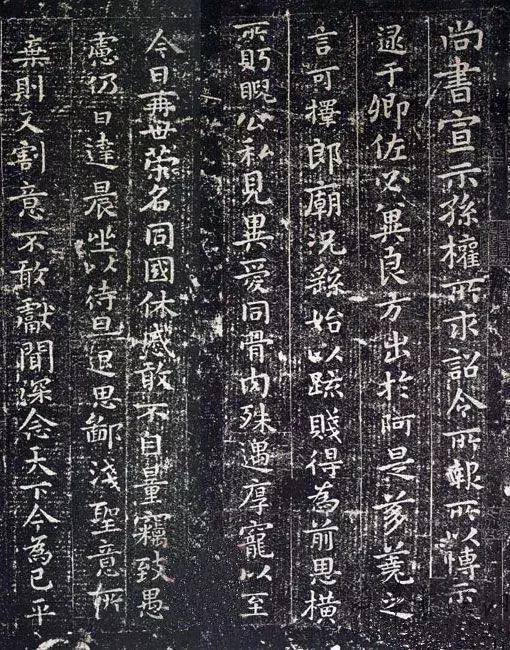 尚書宣示孫權所求詔令所報所以博示
逮于卿佐必冀良方出於阿是芻蕘之
言可擇郎廟況繇始以疏賤得為前恩橫
所眄睨公私見異愛同骨肉殊遇厚寵以至
今日再世榮名同國休慼敢不自量竊致愚
慮仍日達晨坐以待旦退思鄙淺聖意所
棄則又割意不敢獻聞深念天下今為已平